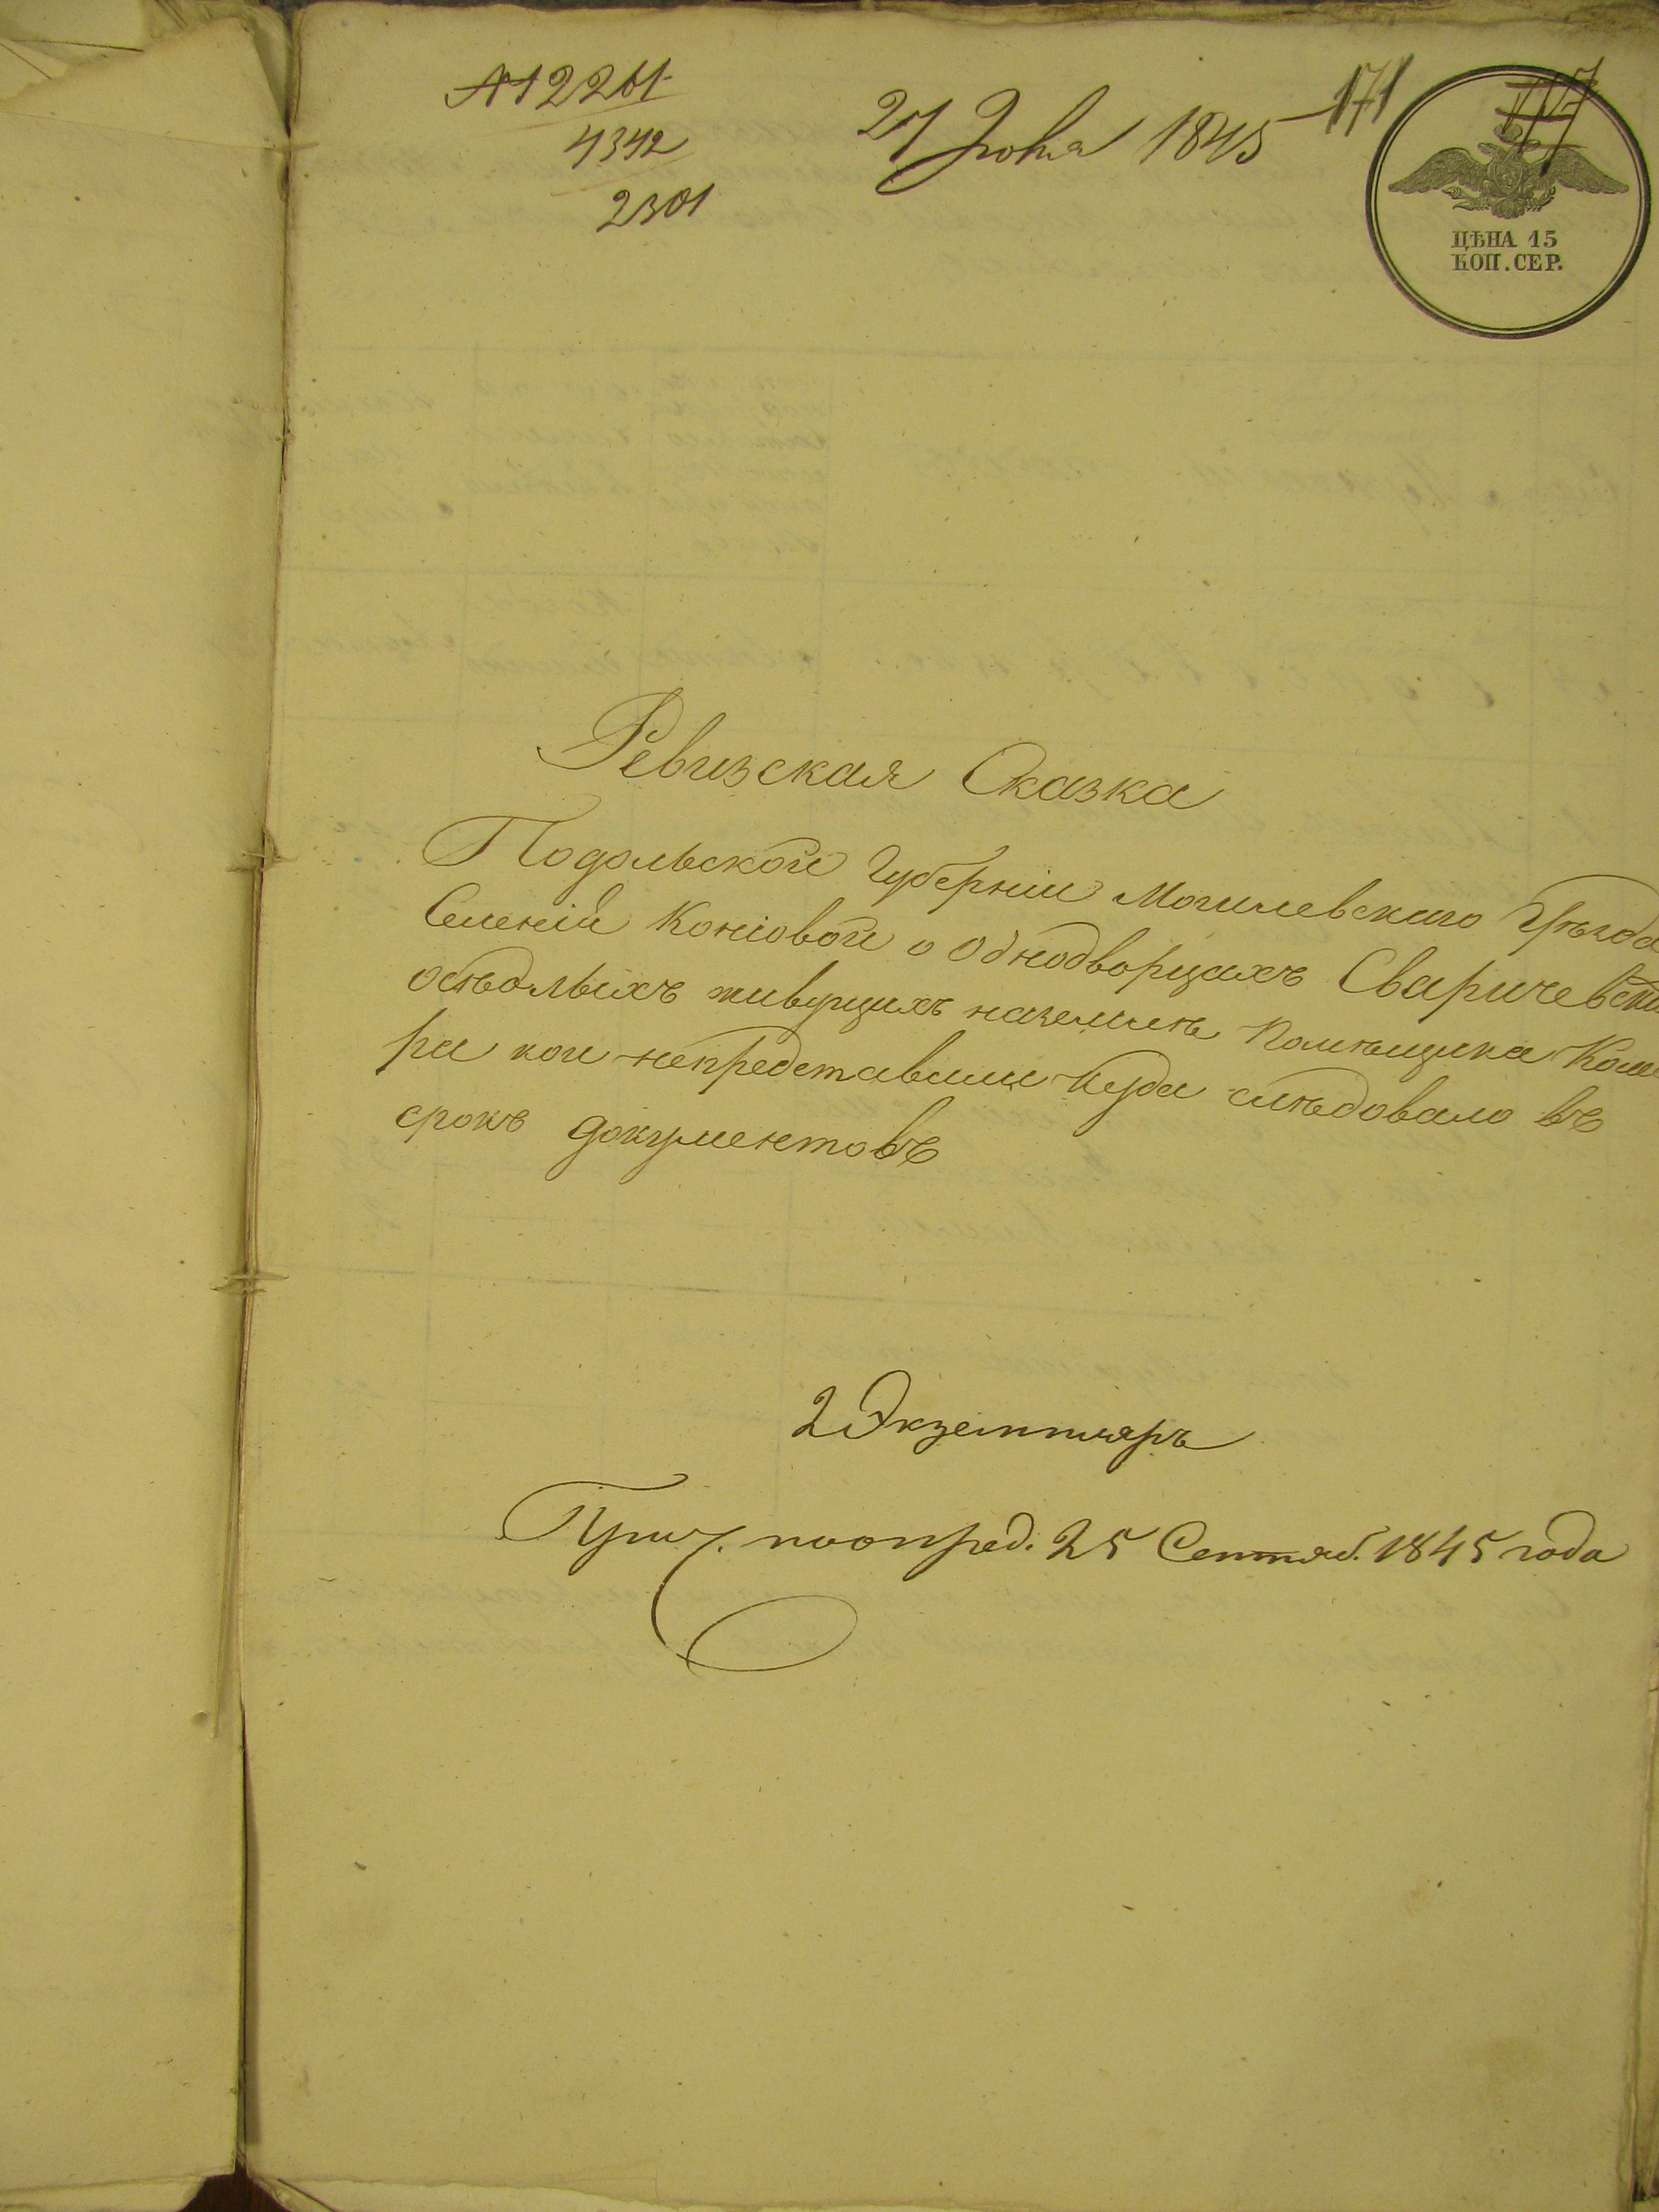 № 12261
4342
2301
27 Июня 1845
171
117
ЦѢНА 15
КОП. СЕР.
Ревизская Сказка
Подольской Губерніи Могилевскаго Уѣзда
Селенія о Однодворцахъ Сваричевски
осѣдлыхъ живущихъ наземлѣ Помѣщика Кома
ра кои непредставили куда слѣдовало въ
срокъ документовъ
2 Экземпляръ
Прич. поопред. 25 Сентяб. 1845 года